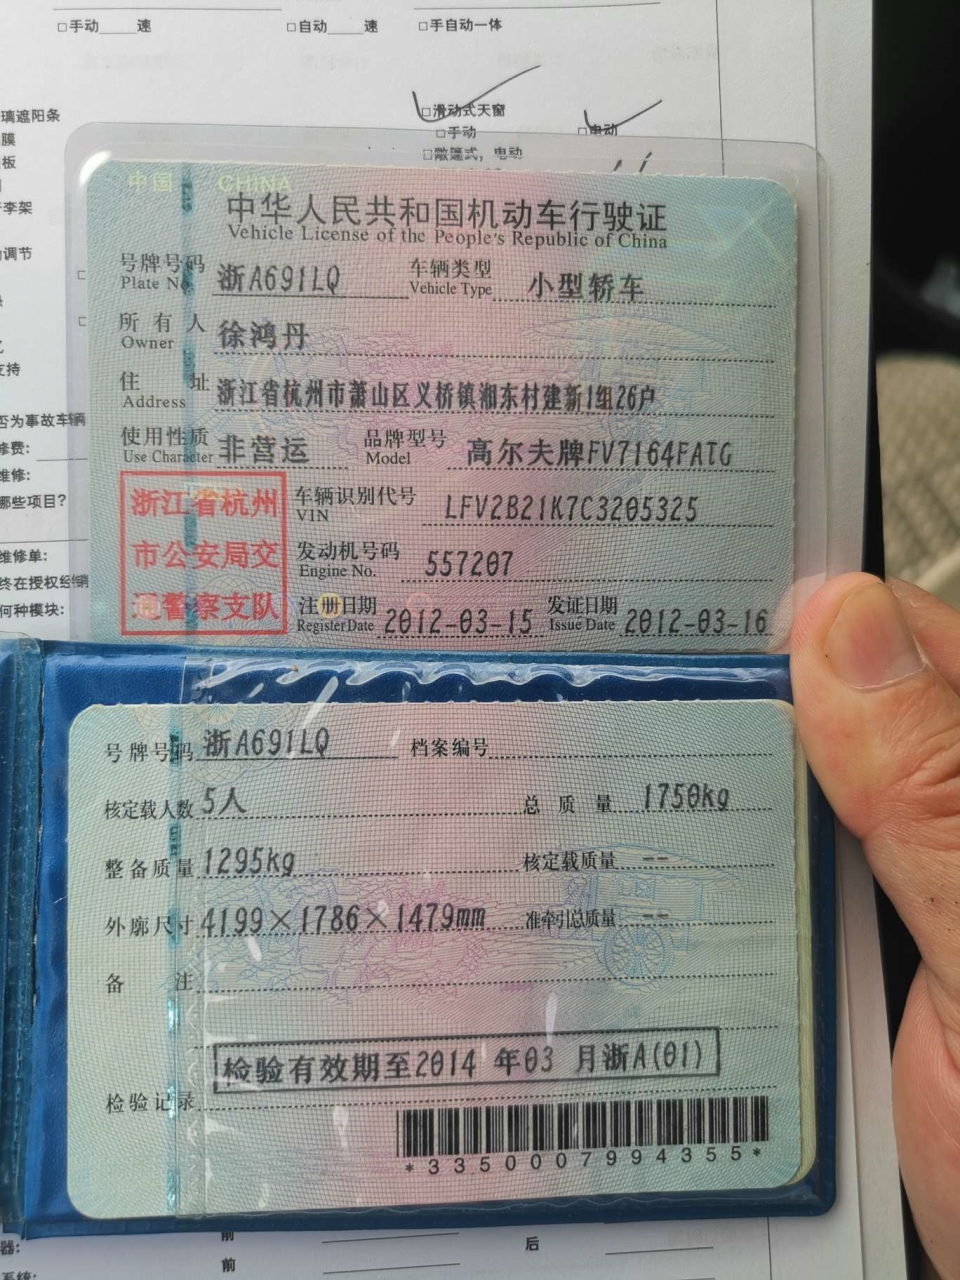 □手动____速 □自动____速 □手自动一体
璃遮阳条 □滑动式天窗
膜 □手动 □电动
板 □敞篷式，电动
李架
调节
支持
否为事故车辆
修费:
维修:
哪些项目?
维修单:
终在授权经销
何种模块:
中国 CHINA
中华人民共和国机动车行驶证
Vehicle License of the People's Republic of China
号牌号码 浙A691LQ 车辆类型 小型轿车
Plate No. Vehicle Type
所有人 徐鸿丹
Owner
住址 浙江省杭州市萧山区义桥镇湘东村建新1组26户
Address
使用性质 非营运 品牌型号 高尔夫牌FV7164FATG
Use Character Model
浙江省杭州
市公安局交
通警察支队
车辆识别代号 LFV2B21K7C3205325
VIN
发动机号码 557207
Engine No.
注册日期 2012-03-15 发证日期 2012-03-16
Register Date Issue Date
号牌号码 浙A691LQ 档案编号
核定载人数 5人 总质量 1750kg
整备质量 1295kg 核定载质量 --
外廓尺寸 4199×1786×1479mm 准牵引总质量 --
备注
检验有效期至2014 年03 月浙A(01)
检验记录
*3350007994355*
器: 前 后
系统: 前